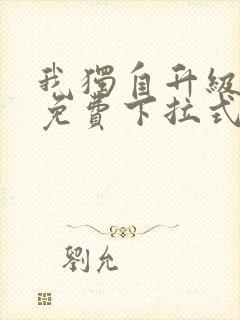 我獨自升級
免費下拉式
劉允